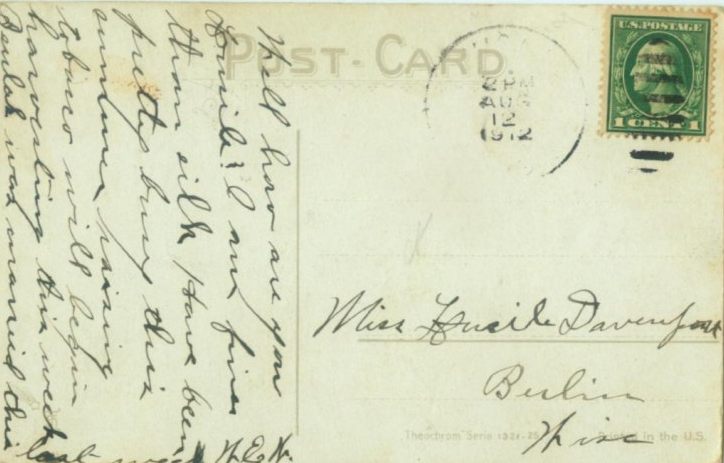 POST-CARD
U.S. POSTAGE
1 CENT 1
2 PM
AUG
12
1912
Well how are you
Lucile? I am finer
than silk Have been
pretty busy this
summer raising
tobacco will begin
harvesting this week
Beulah was married this
last week N.E.N.
Miss Lucile Davenport
Berlin
Wisc
Theochrom Serie
Printed in the U.S.